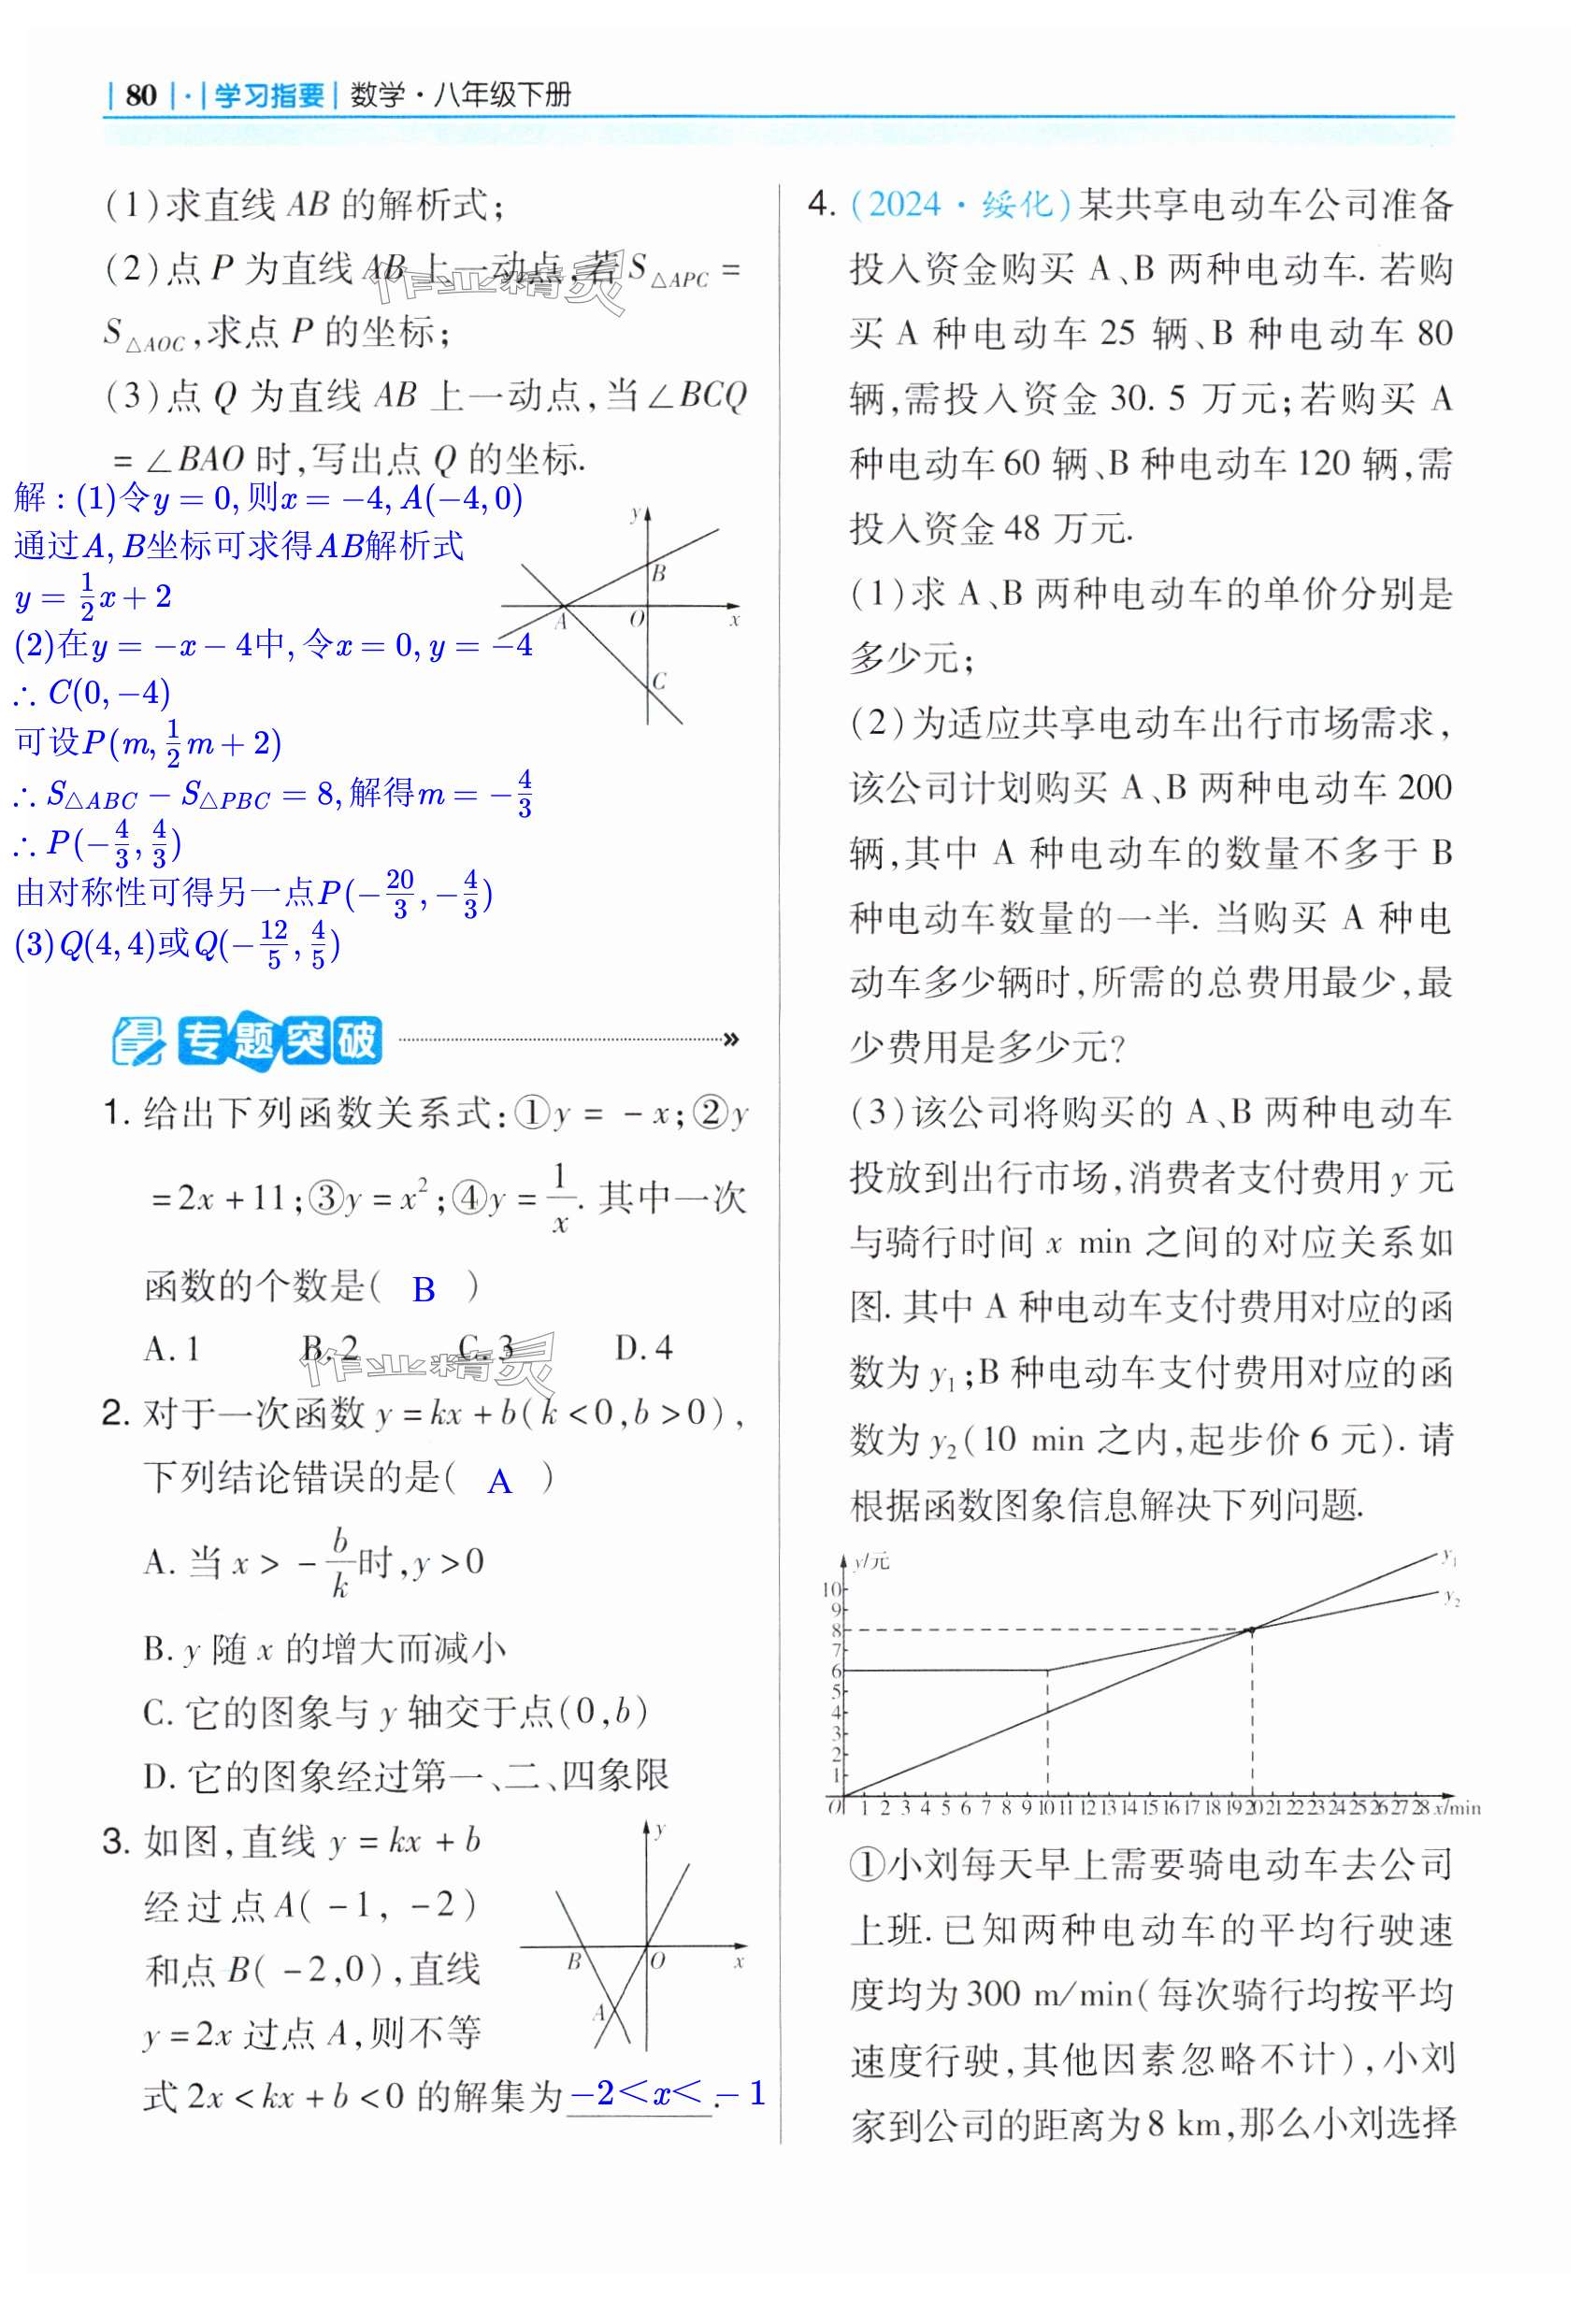 80 · 学习指要 数学·八年级下册
(1)求直线 AB 的解析式;
(2)点 P 为直线 AB 上一动点,若 S△APC =
S△AOC,求点 P 的坐标;
(3)点 Q 为直线 AB 上一动点,当∠BCQ
=∠BAO 时,写出点 Q 的坐标.
解:(1)令y=0,则x=−4,A(−4,0)
通过A,B坐标可求得AB解析式
y=1/2x+2
(2)在y=−x−4中,令x=0,y=−4
∴C(0,−4)
可设P(m,1/2m+2)
∴S△ABC−S△PBC=8,解得m=−4/3
∴P(−4/3,4/3)
由对称性可得另一点P(−20/3,−4/3)
(3)Q(4,4)或Q(−12/5,4/5)
y
B
A O x
C
作业精灵
专题突破
1. 给出下列函数关系式:①y=-x;②y
=2x+11;③y=x²;④y=1/x. 其中一次
函数的个数是( B )
A.1 B.2 C.3 D.4
作业精灵
2. 对于一次函数 y=kx+b(k<0,b>0),
下列结论错误的是( A )
A. 当 x>-b/k时,y>0
B. y 随 x 的增大而减小
C. 它的图象与 y 轴交于点(0,b)
D. 它的图象经过第一、二、四象限
3. 如图,直线 y=kx+b
经过点 A(-1,-2)
和点 B(-2,0),直线
y=2x 过点 A,则不等
式 2x<kx+b<0 的解集为−2<x<−1.
y
B O x
A
4. (2024·绥化)某共享电动车公司准备
投入资金购买 A、B 两种电动车. 若购
买 A 种电动车 25 辆、B 种电动车 80
辆,需投入资金 30.5 万元;若购买 A
种电动车 60 辆、B 种电动车 120 辆,需
投入资金 48 万元.
(1)求 A、B 两种电动车的单价分别是
多少元;
(2)为适应共享电动车出行市场需求,
该公司计划购买 A、B 两种电动车 200
辆,其中 A 种电动车的数量不多于 B
种电动车数量的一半. 当购买 A 种电
动车多少辆时,所需的总费用最少,最
少费用是多少元?
(3)该公司将购买的 A、B 两种电动车
投放到出行市场,消费者支付费用 y 元
与骑行时间 x min 之间的对应关系如
图. 其中 A 种电动车支付费用对应的函
数为 y₁;B 种电动车支付费用对应的函
数为 y₂(10 min 之内,起步价 6 元). 请
根据函数图象信息解决下列问题.
y/元
y₁
y₂
10
9
8
7
6
5
4
3
2
1
O 1 2 3 4 5 6 7 8 9 10 11 12 13 14 15 16 17 18 19 20 21 22 23 24 25 26 27 28 x/min
①小刘每天早上需要骑电动车去公司
上班. 已知两种电动车的平均行驶速
度均为 300 m/min(每次骑行均按平均
速度行驶,其他因素忽略不计),小刘
家到公司的距离为 8 km,那么小刘选择